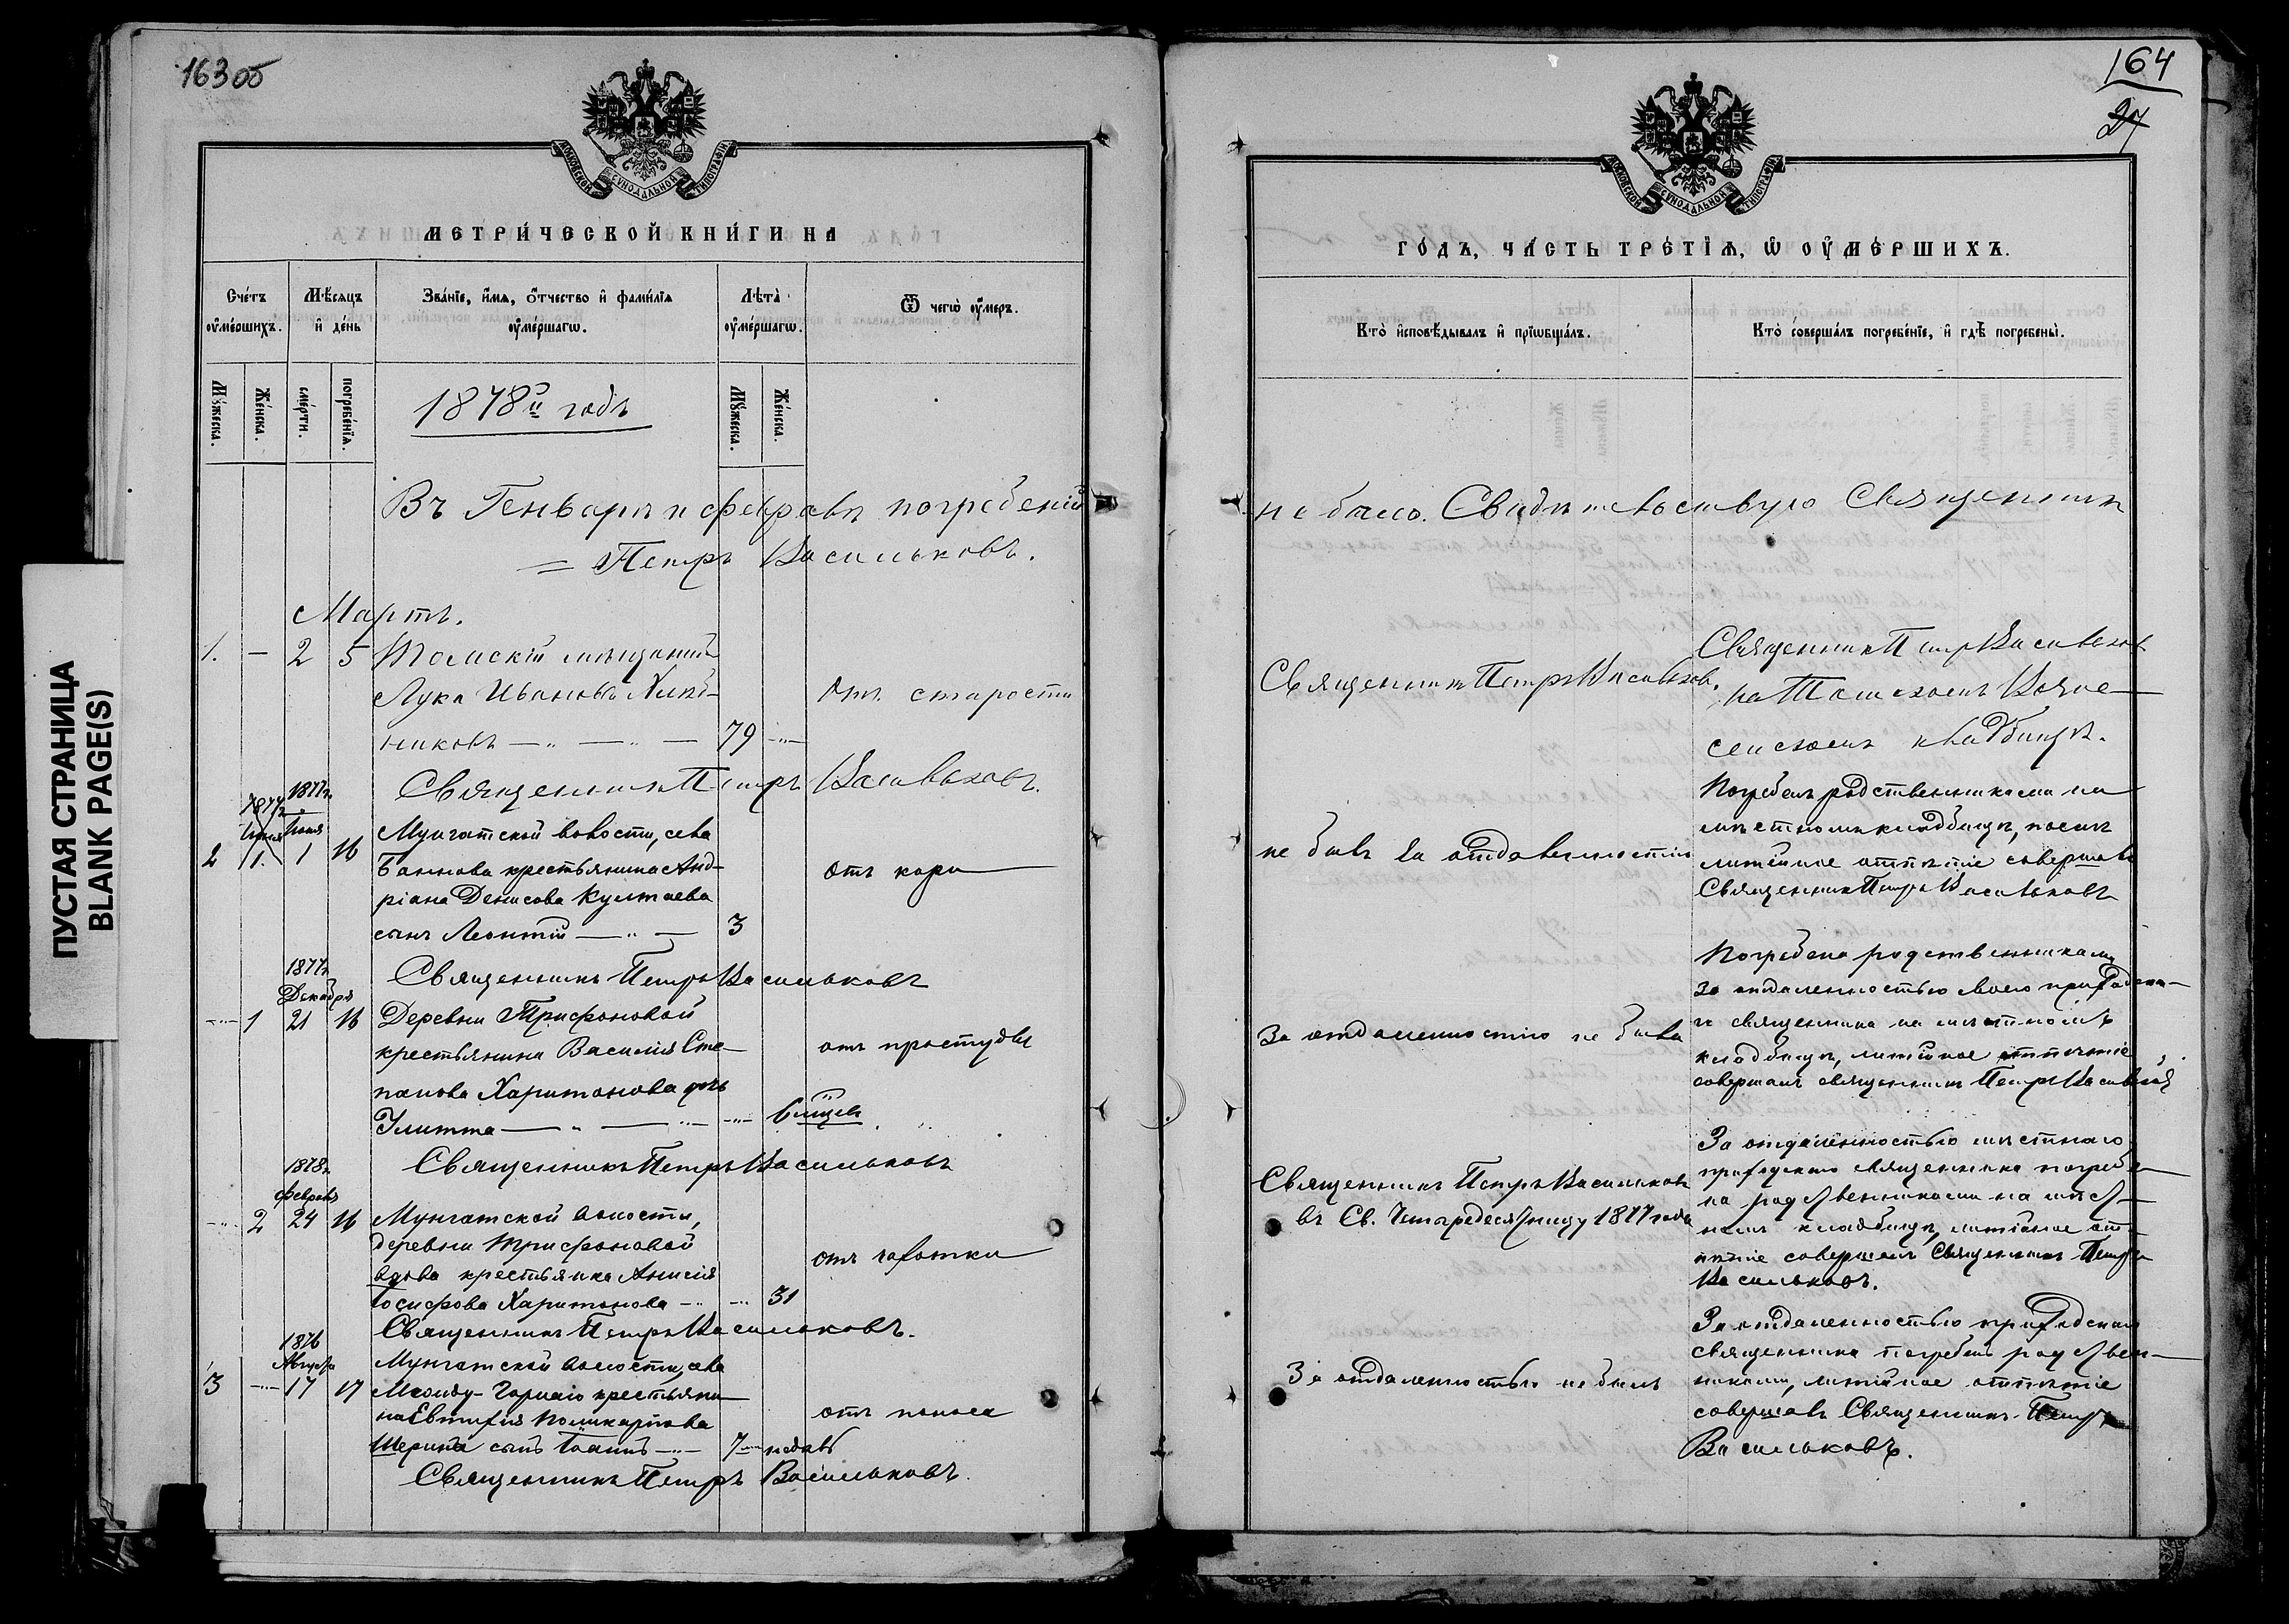 163 об
МОСКОВСКОЙ СУНОДАЛЬНОЙ ТИПОГРАФІИ
МЕТРИ́ЧЕСКОЙ КНИ́ГИ НА
Сче́тъ оу҆ме́ршихъ.
Мѣ́сяцъ и҆ де́нь
Зва́нїе, и҆́мя, ѻ҆́тчество и҆ фами́лїя оу҆ме́ршагѡ.
Лѣта̀ оу҆ме́ршагѡ.
Ѿ чегѡ̀ оу҆́меръ.
Мꙋ́жеска.
Же́нска.
сме́рти.
погребе́нїѧ.
Мꙋ́жеска.
Же́нска.
1878й годъ
Въ Генварѣ и февралѣ погребеній
= Петръ Васильковъ.
Мартъ.
1. — 2 5 Томскій мѣщанинъ
Лука Ивановъ
никовъ — 79 —
Отъ старости
Священникъ Петръ Васильковъ.
1877г. 1877г.
Іюня Іюня
2 1. 1 16 Мунгатской волости, села
Баннова крестьянина Анд-
ріана Денисова
сынъ Леонтій — 3
Отъ кори
Священникъ Петръ Васильковъ
1877г.
Декабря
— 1 21 16 Деревни Трифоновой
крестьянина Василія Сте-
панова Харитонова дочь
Улитта — 6 мцев
отъ простуды
Священникъ Петръ Васильковъ
1878г.
Февраль
— 2 24 16 Мунгатской волости,
деревни Трифоновой
вдова крестьянка Анисія
Іосифова Харитонова — 31
отъ чахотки
Священникъ Петръ Васильковъ.
1876
Августа
3 — 17 17 Мунгатской волости, села
крестьяни-
на Евтихія Поликарпова
Шерина сынъ Іоаннъ — 7 — недѣль
отъ поноса
Священникъ Петръ Васильковъ.
164
27
МОСКОВСКОЙ СУНОДАЛЬНОЙ ТИПОГРАФІИ
ГО́ДЪ, ЧА́СТЬ ТРЕ́ТЇѦ, Ѡ҆ ОУ҆МЕ́РШИХЪ.
Кто̀ и҆сповѣ́дывалъ и҆ прїѡбща́лъ.
Кто̀ соверша́лъ погребе́нїе, и҆ гдѣ̀ погребены̀.
не было. Свидѣтельствую Священникъ
Священникъ Петръ Васильков.
Священникъ Петръ Васильков
на Томскомъ Возне-
сенскомъ кладбищѣ.
не былъ за отдаленностію
Погребенъ родственниками на
мѣстномъ кладбищѣ, посемъ
литійное отпѣтіе совершалъ
Священникъ Петръ Васильковъ
За отдаленностію не была
Погребена родственниками
за отдаленностью своего приходска-
го священника на мѣстномъ
кладбищѣ, литійное отпѣтіе
совершалъ священникъ Петръ Васильков
Священникъ Петръ Васильковъ
въ Св. Четыредесятницу 1877 года
За отдаленностью мѣстнаго
приходскаго священника погребе-
на родственниками на мѣст-
номъ кладбищѣ, литійное от-
пѣтіе совершалъ Священникъ Петръ
Васильковъ.
За отдаленностью не былъ
За отдаленностью приходскаго
священника погребенъ родствен-
никами, литійное отпѣтіе
совершалъ Священникъ Петръ
Васильковъ.
ПУСТАЯ СТРАНИЦА
BLANK PAGE(S)